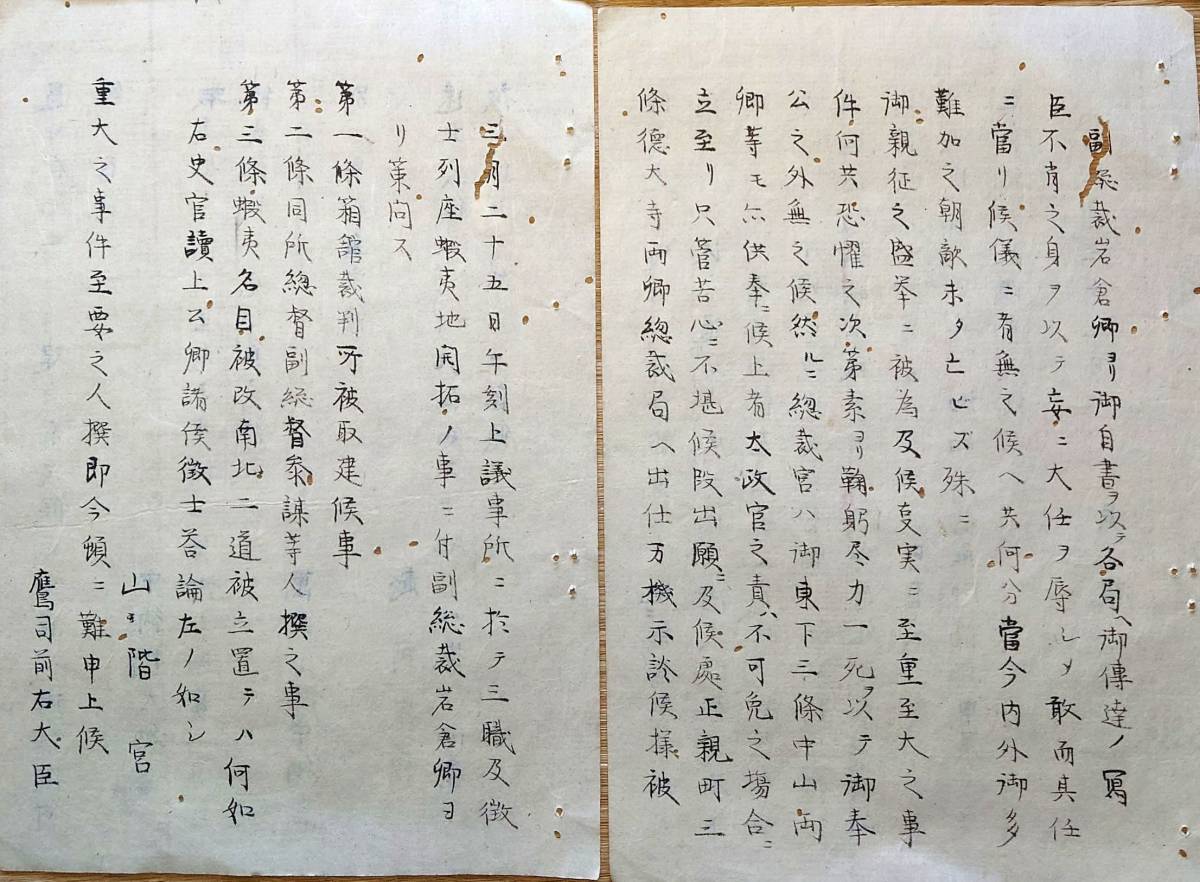 副総裁岩倉卿ヨリ御自書ヲ以テ各局ヘ御傳達ノ寫
臣不肖之身ヲ以テ妄ニ大任ヲ辱シメ敢而其任
ニ當リ候儀ニ者無之候ヘ共何分當今内外御多
難加之朝敵未タ亡ビズ殊ニ
御親征之盛挙ニ被為及候叓実ニ至重至大之事
件何共恐懼之次第素ヨリ鞠躬尽力一死ヲ以テ御奉
公之外無之候然ルニ総裁宮ハ御東下三條中山両
卿等モ亦供奉ニ候上者太政官之責ハ不可免之塲合ニ
立至リ只管苦心ニ不堪候段出願ニ及候處正親町三
條徳大寺両卿総裁局ヘ出仕万機示談候様被
三月二十五日午刻上議事所ニ於テ三職及徴
士列座蝦夷地開拓ノ事ニ付副総裁岩倉卿ヨ
リ策問ス
第一條箱舘裁判所被取建候事
第二條同所総督副総督参謀等人撰之事
第三條蝦夷名目被改南北二道被立置テハ何如
右史官讀上公卿諸侯徴士答論左ノ如シ
山階宮
重大之事件至要之人撰即今頓ニ難申上候
鷹司前右大臣